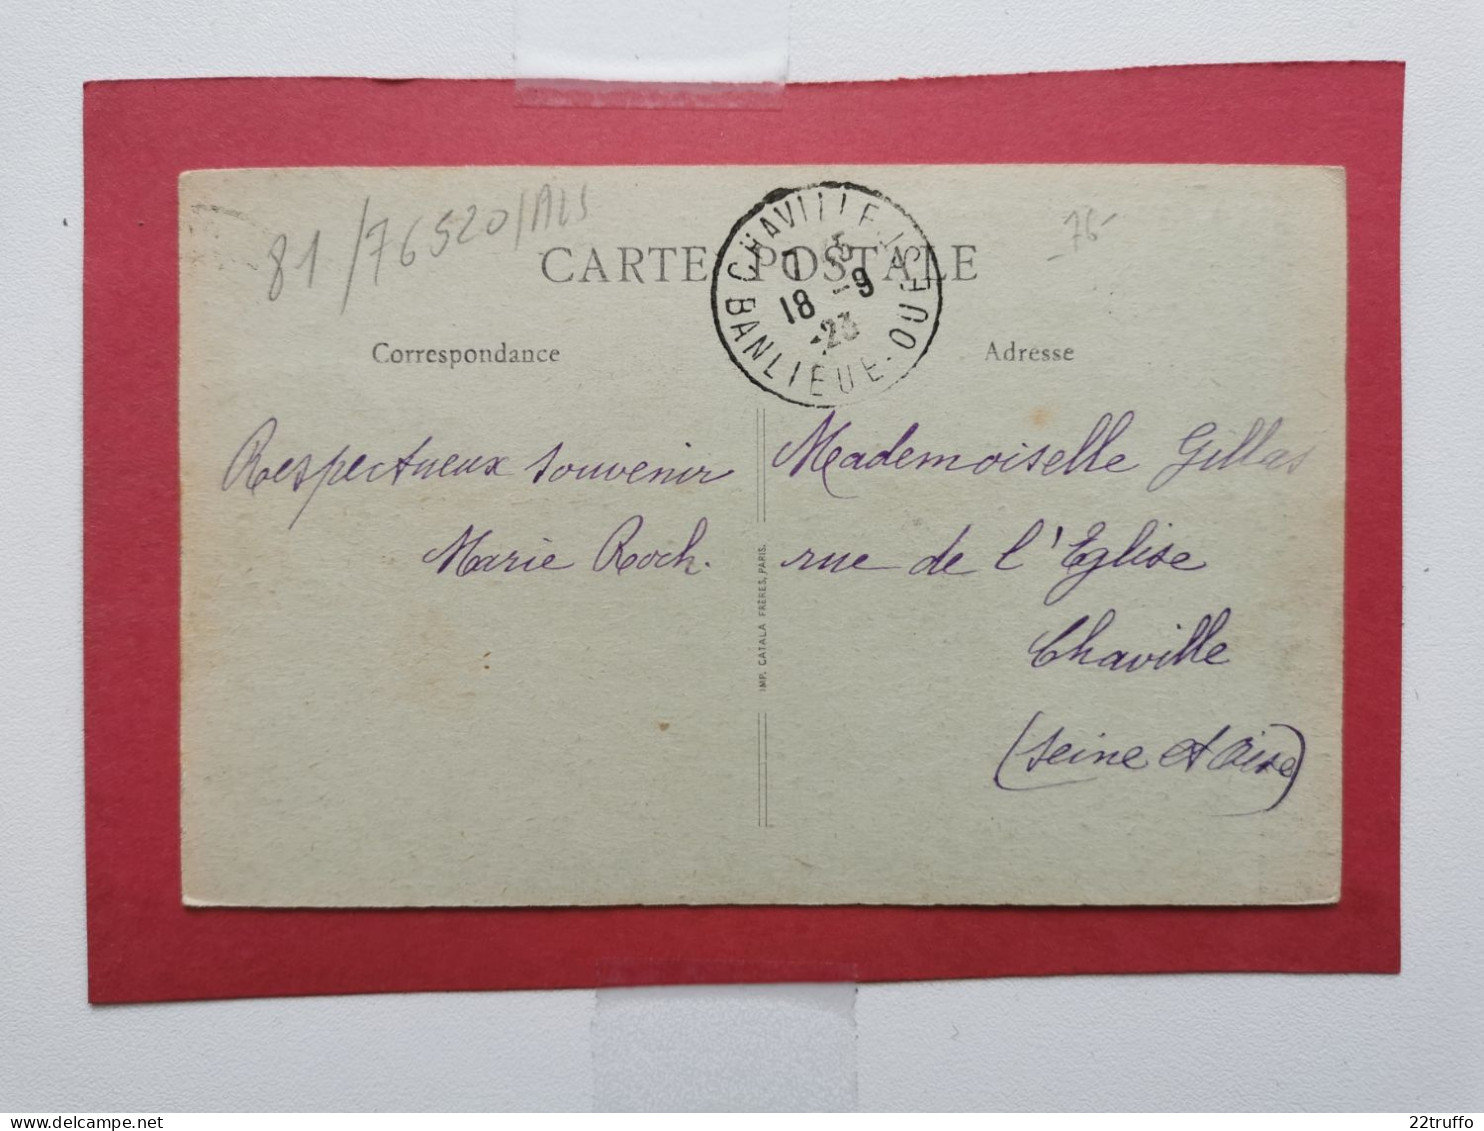 81/76520/ALS
76-
CARTE POSTALE
CHAVILLE
BANLIEUE-OUEST
18 -9
-23
Correspondance
Adresse
Respectueux souvenir
Marie Roch.
Mademoiselle Gillas
rue de l'Eglise
Chaville
(Seine et Oise)
IMP. CATALA FRÈRES, PARIS.
22truffo